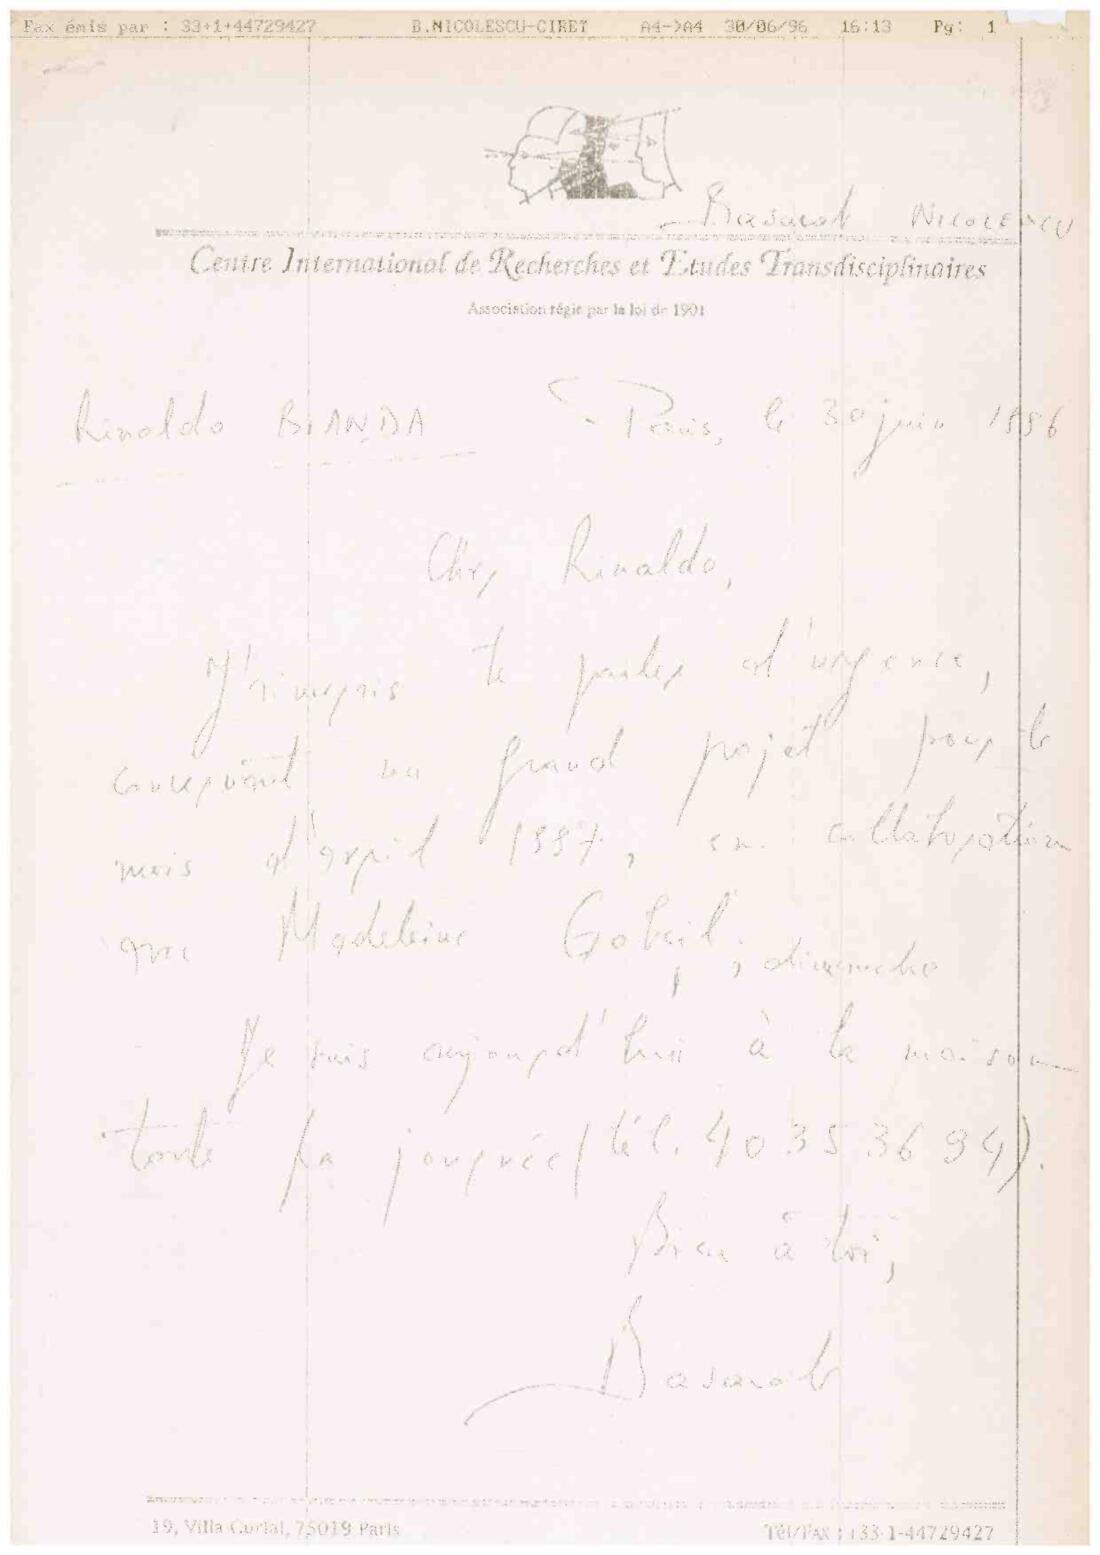 Fax émis par : 33+1+44729427 B.NICOLESCU-CIRET A4->A4 30/06/96 16:13 Pg: 1
Basarab NICOLESCU
Centre International de Recherches et Etudes Transdisciplinaires
Association régie par la loi de 1901
Rinaldo BIANDA Paris, le 30 juin 1996
Cher Rinaldo,
J'aimerais te parler d'urgence,
concernant un grand projet pour le
mois d'avril 1997, en collaboration
avec Madeleine Gobeil;
dimanche
Je suis aujourd'hui à la maison
toute la journée (tél. 40 35 36 94).
Bien à toi,
Basarab
19, Villa Curial, 75019 Paris Tél/Fax : +33-1-44729427